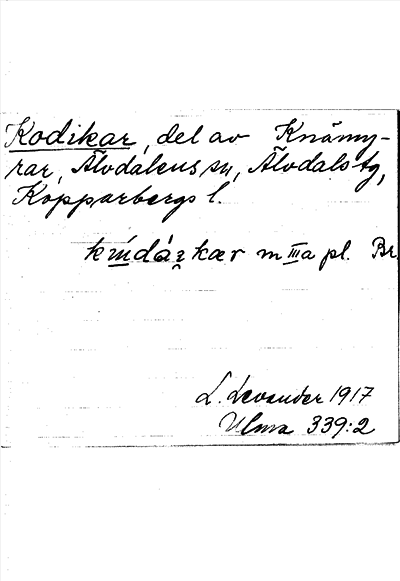 Kodikar, del av Knämy-
rar, Älvdalens sn, Älvdals tg,
Kopparbergs l.
m IIIa pl. Br.
L. Levander 1917
Ulma 339:2